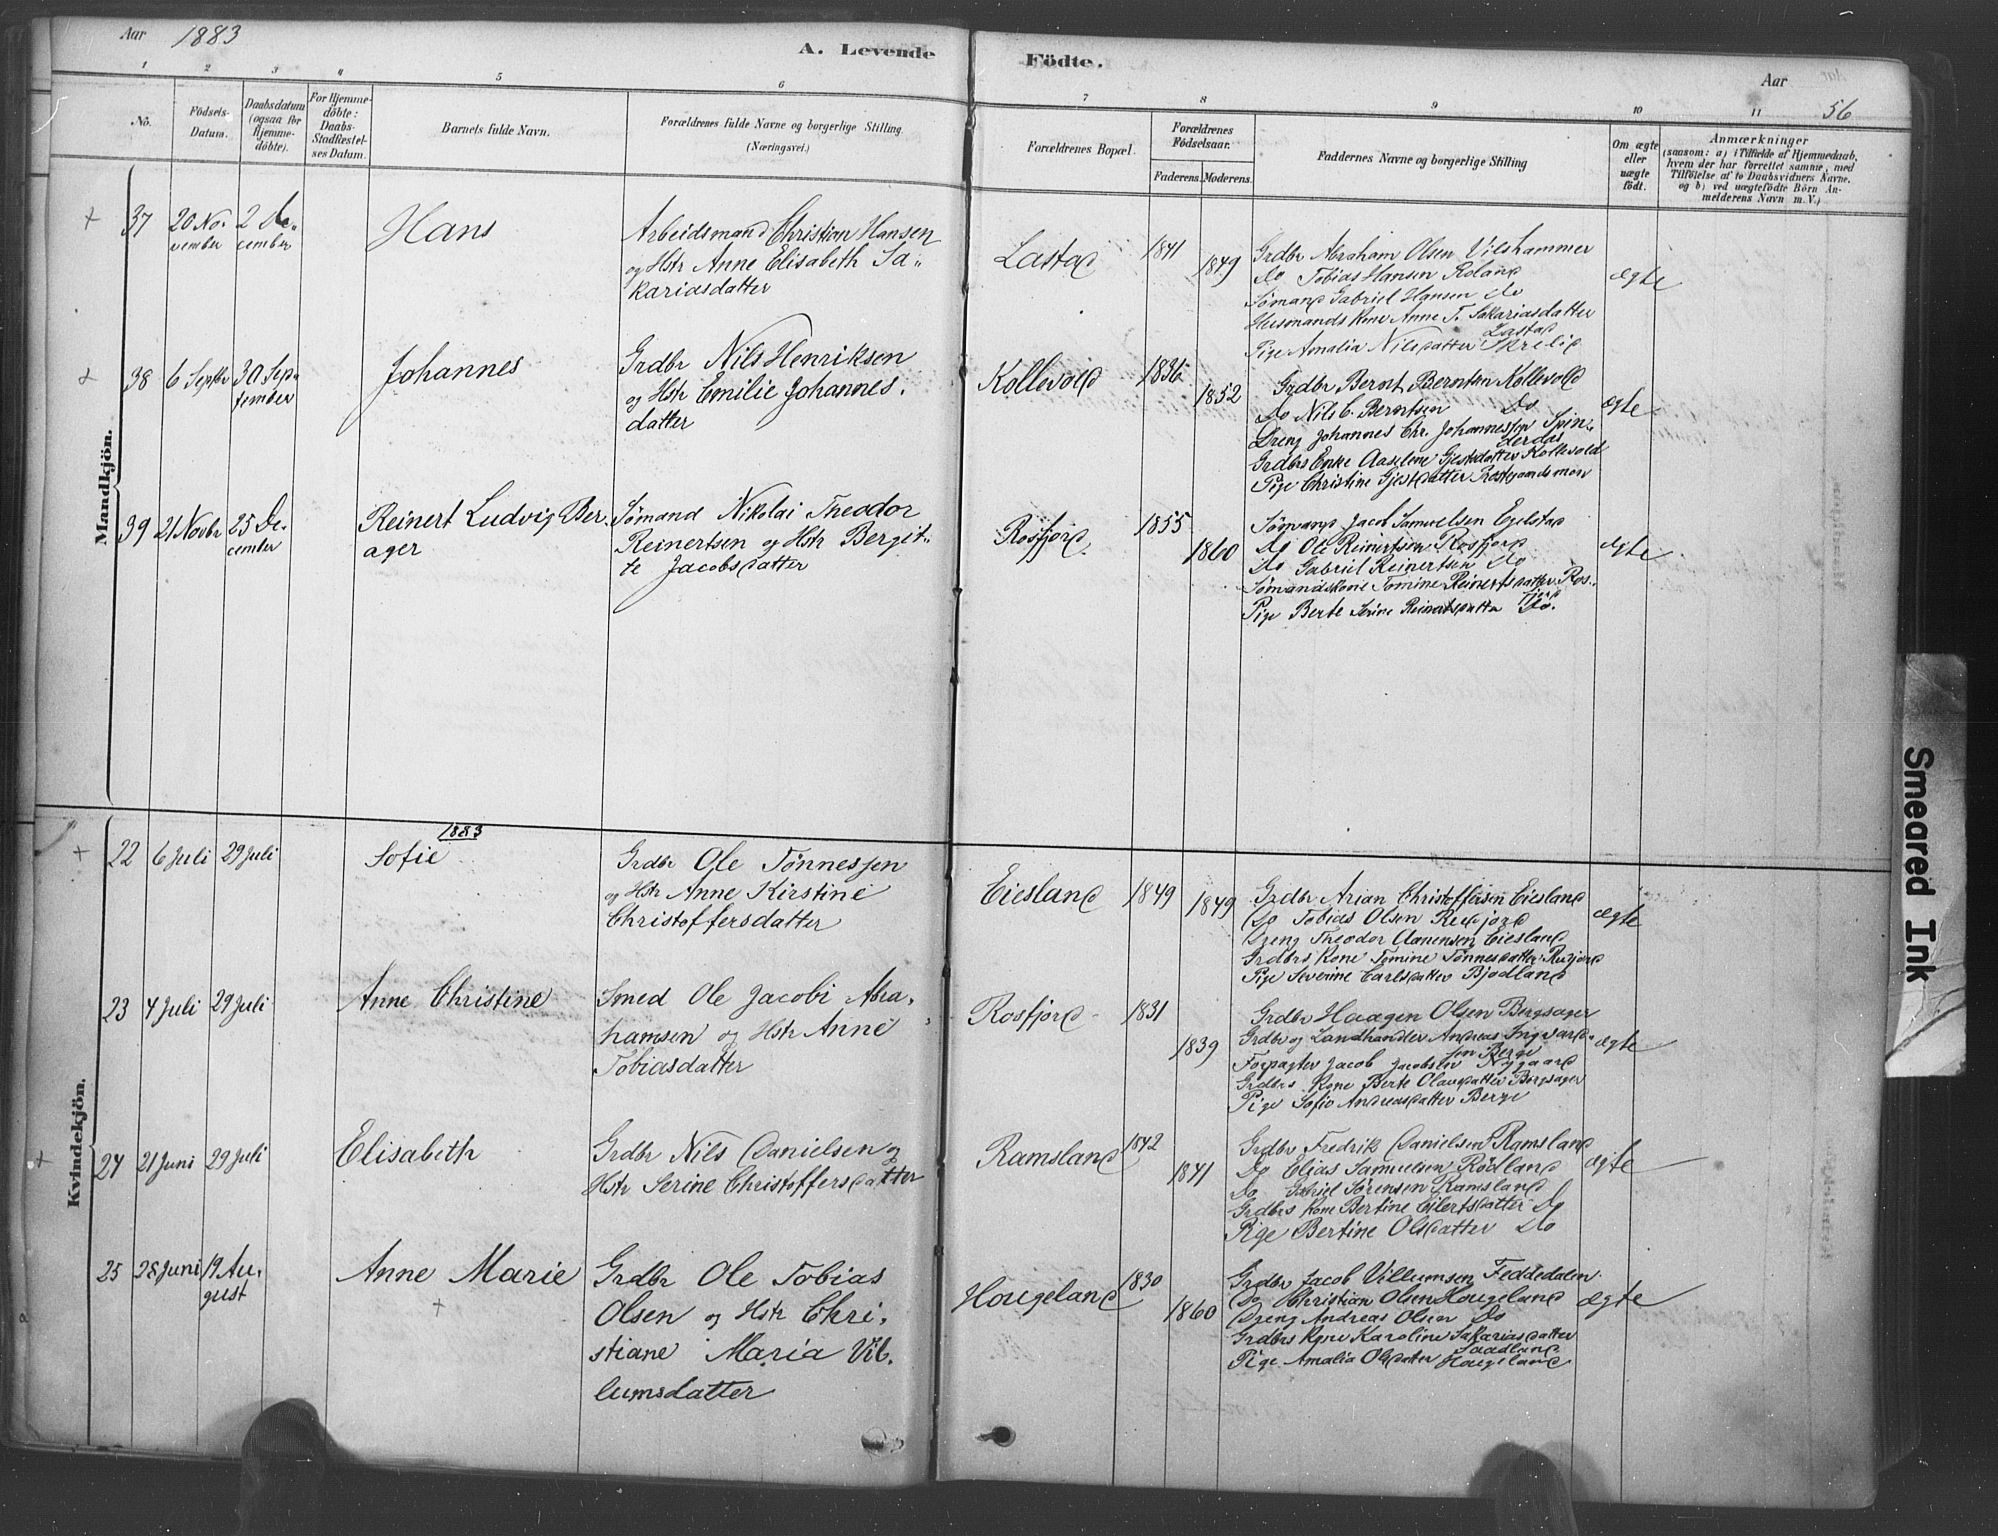 Aar 1883
A. Levende Födte.
Aar
56
1 2 3 4 5 6 7 8 9 10 11
No.
Födsels-
Datum.
Daabsdatum
(ogsaa for
Hjemme-
döbte).
For Hjemme-
döbte:
Daabs-
Stadfæstel-
ses Datum.
Barnets fulde Navn.
Forældrenes fulde Navne og borgerlige Stilling.
(Næringsvei.)
Forældrenes Bopæl.
Forældrenes
Födselsaar.
Faderens. Moderens.
Faddernes Navne og borgerlige Stilling
Om ægte
eller
uægte
födt.
Anmærkninger
(saasom: a) i Tilfælde af Hjemmedaab,
hvem der har forrettet samme, med
Tilföielse af to Daabsvidners Navne,
og b) ved uægtefödte Börn An-
melderens Navn m. V.)
Mandkjön.
37
20 No-
vember
2 De-
cember
Hans
Arbeidsmand Christian Hansen
og Hstr Anne Elisabeth Sa-
kariasdatter
Lastad
1841
1849
Grdbr Abraham Olsen Vilshammer
Do Tobias Hansen Roland
Sømand Gabriel Hansen Do
Husmands Kone Anne T. Sakariasdatter
Lastad
Pige Amalia Nilsdatter Skreli
ægte
38
6 Septbr
30 Sep-
tember
Johannes
Grdbr Nils Henriksen
og Hstr Emilie Johannes-
datter
Kollevold
1836
1852
Grdbr Bernt Berntsen Kollevold
Do Nils C. Berntsen Do
Dreng Johannes Chr. Johannessen Spin-
Grdbrs Enke Aaselene Gjestsdatter Kollevold
Pige Christine Gjestsdatter
ægte
39
21 Novbr
25 De-
cember
Reinert Ludvig Ber-
ager
Sømand Nikolai Theodor
Reinertsen og Hstr Bergit-
te Jacobsdatter
Rosfjord
1855
1860
Sømand Jacob Samuelsen Egelstad
Do Ole Reinertsen Rosfjord
Do Gabriel Reinertsen Do
Sømandskone Tomine Reinertsdatter Ros-
fjord
Pige Berte Serine Reinertsdatter Do.
ægte
Kvindekjön.
1883
22
6 Juli
29 Juli
Sofie
Grdbr Ole Tönnessen
og Hstr Anne Kirstine
Christoffersdatter
Eiesland
1849
1849
Grdbr Arian Christoffersen Eiesland
Do Tobias Olsen Refjord
Dreng Theodor Aanensen Eiesland
Grdbrs Kone Tomine Tönnesdatter
Pige Severine Carlsdatter Bjodland
ægte
23
4 Juli
29 Juli
Anne Christine
Smed Ole Jacobi Abra-
hamsen og Hstr Anne
Tobiasdatter
Rosfjord
1831
1839
Grdbr Haagen Olsen Bergsager
Grdbr og Landhandler Andreas Ingvard-
sen Berge
Forpagter Jacob Jacobsen Nygaard
Grdbrs Kone Berte Olausdatter Bergsager
Pige Sofie Andreasdatter Berge
ægte
24
21 Juni
29 Juli
Elisabeth
Grdbr Nils Danielsen og
Hstr Serine Christoffersdatter
Ramsland
1842
1841
Grdbr Fredrik Danielsen Ramsland
Do Elias Samuelsen Rödland
Do Gabriel Sörensen Ramsland
Grdbrs Kone Bertine Eilertsdatter Do
Pige Bertine Olsdatter Do
ægte
25
28 Juni
19 Au-
gust
Anne Marie
Grdbr Ole Tobias
Olsen og Hstr Chri-
stiane Maria Vil-
lumsdatter
Hougeland
1830
1860
Grdbr Jacob Villumsen Feddedalen
Do Christian Olsen Hougeland
Dreng Andreas Olsen Do
Grdbrs Kone Karoline Sakariasdatter
Saadland
Pige Amalia Olsdatter Hougeland
ægte
Smeared Ink